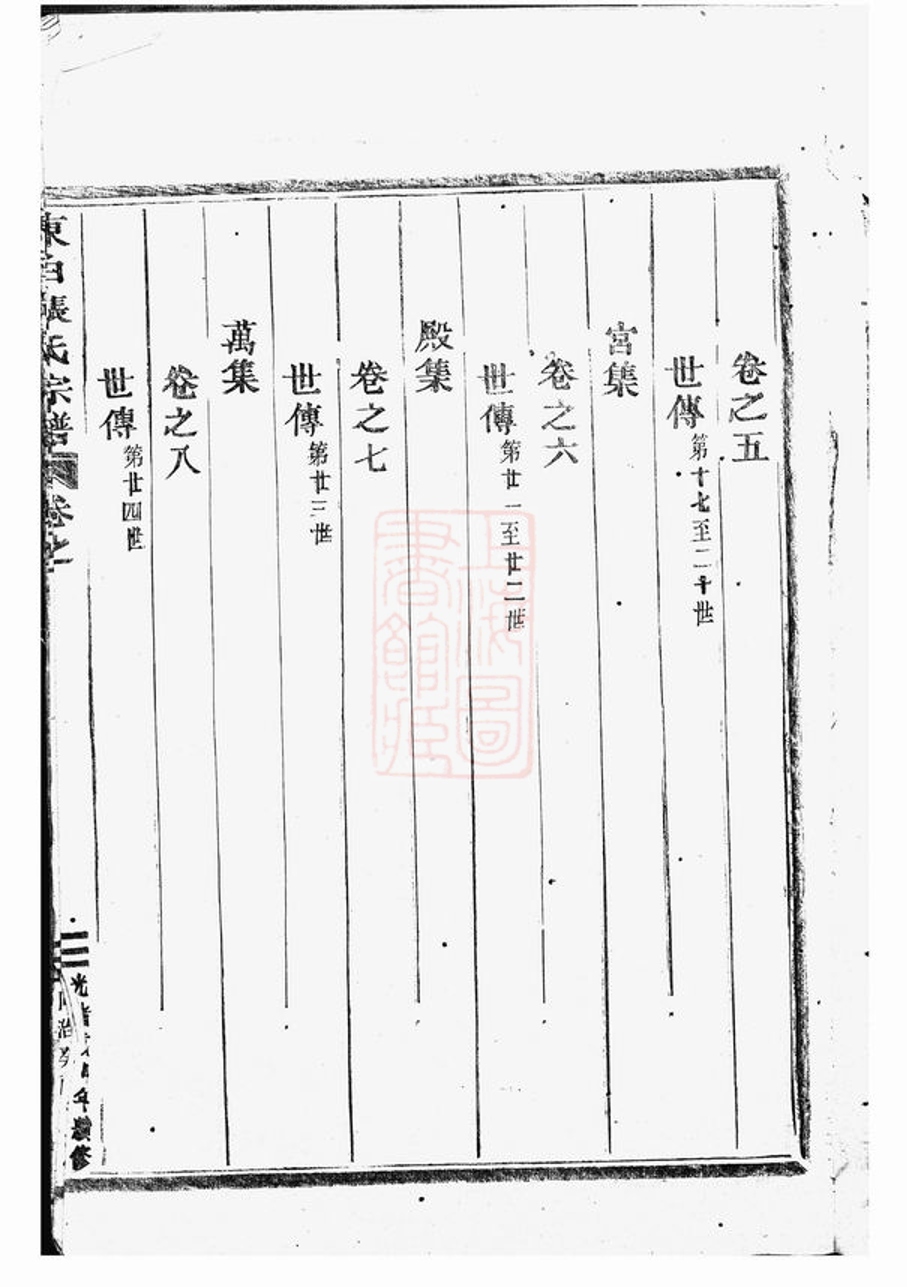 卷之五
世傳第十七至二十世
宮集
卷之六
世傳第廿一至廿二世
殿集
卷之七
世傳第廿三世
萬集
卷之八
世傳第廿四世
張氏宗譜 卷之
光緒 年續修
上海圖書館藏